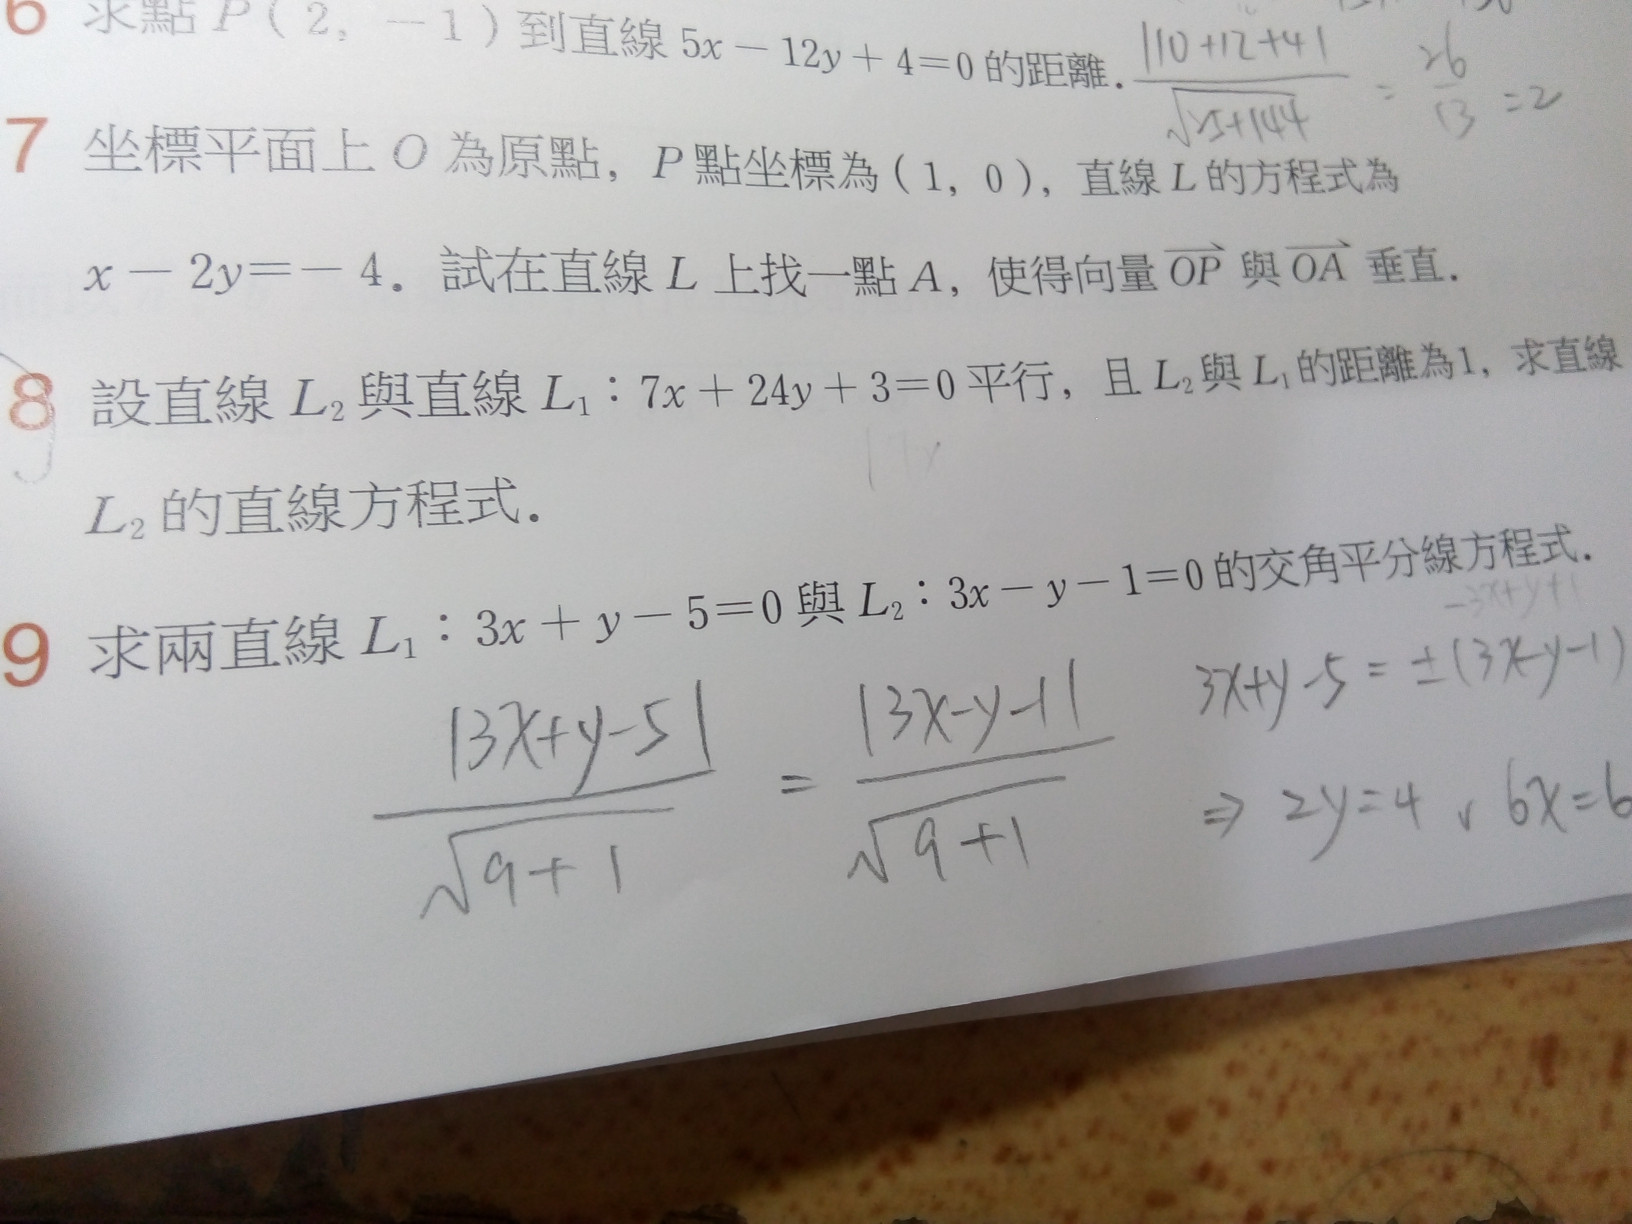 6 求點 P ( 2, －1 ) 到直線 5x－12y＋4＝0 的距離. |10+12+4| / √25+144 = 26/13 =2
7 坐標平面上 O 為原點, P 點坐標為 ( 1, 0 ), 直線 L 的方程式為
x－2y＝－4. 試在直線 L 上找一點 A, 使得向量 OP 與 OA 垂直.
8 設直線 L₂ 與直線 L₁：7x＋24y＋3＝0 平行, 且 L₂ 與 L₁ 的距離為1, 求直線
L₂ 的直線方程式.
9 求兩直線 L₁：3x＋y－5＝0 與 L₂：3x－y－1＝0 的交角平分線方程式.
-3x+y+1
|3x+y-5| / √9+1 = |3x-y-1| / √9+1
3x+y-5 = ±(3x-y-1)
⇒ 2y=4 , 6x=6